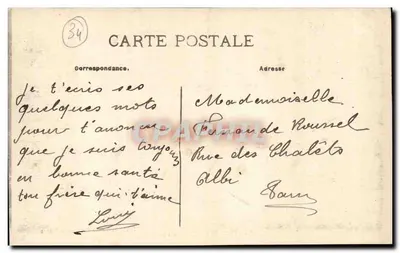 34
CARTE POSTALE
Correspondance.
Adresse
je t'écris ses
quelques mots
pour t'anoncer
que je suis toujours
en bonne santé
ton frère qui t'aime
Louis
Mademoiselle
Fernande Roussel
Rue des Chalêts
Albi
Tarn